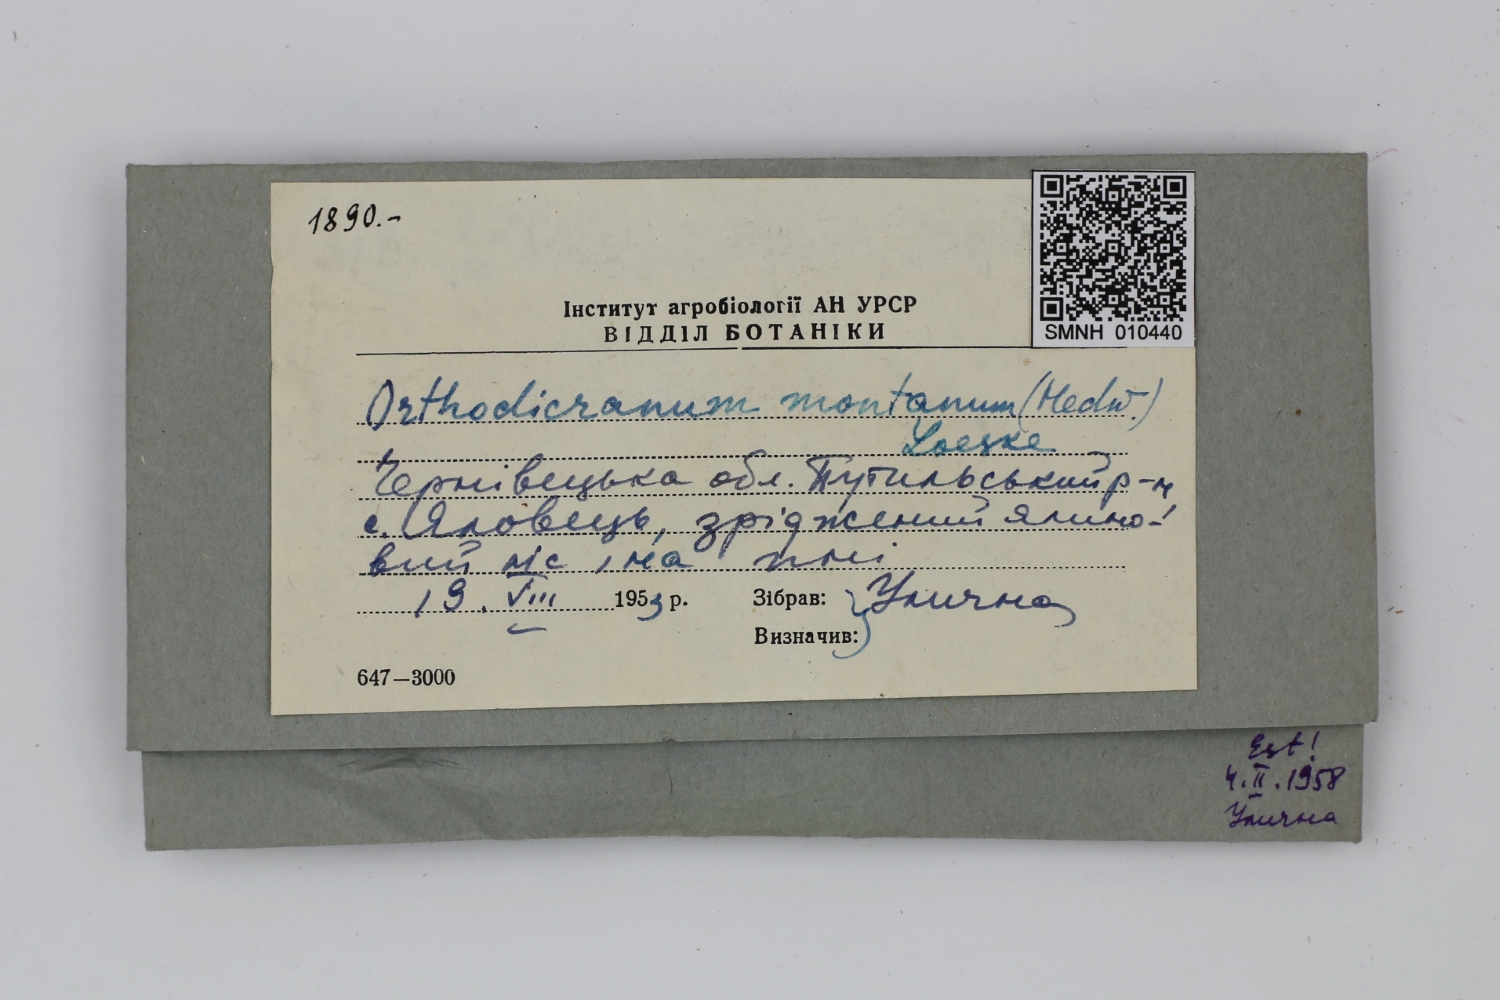 1890.-
SMNH 010440
Інститут агробіології АН УРСР
ВІДДІЛ БОТАНІКИ
Orthodicranum montanum (Hedw.)
Loeske
Чернівецька обл. Путильський р-н
с. Яловець, зріджений ялино-
вий ліс, на пні
19. VIII 1953 р. Зібрав: Улична
Визначив:
647—3000
Est!
4.II.1958
Улична